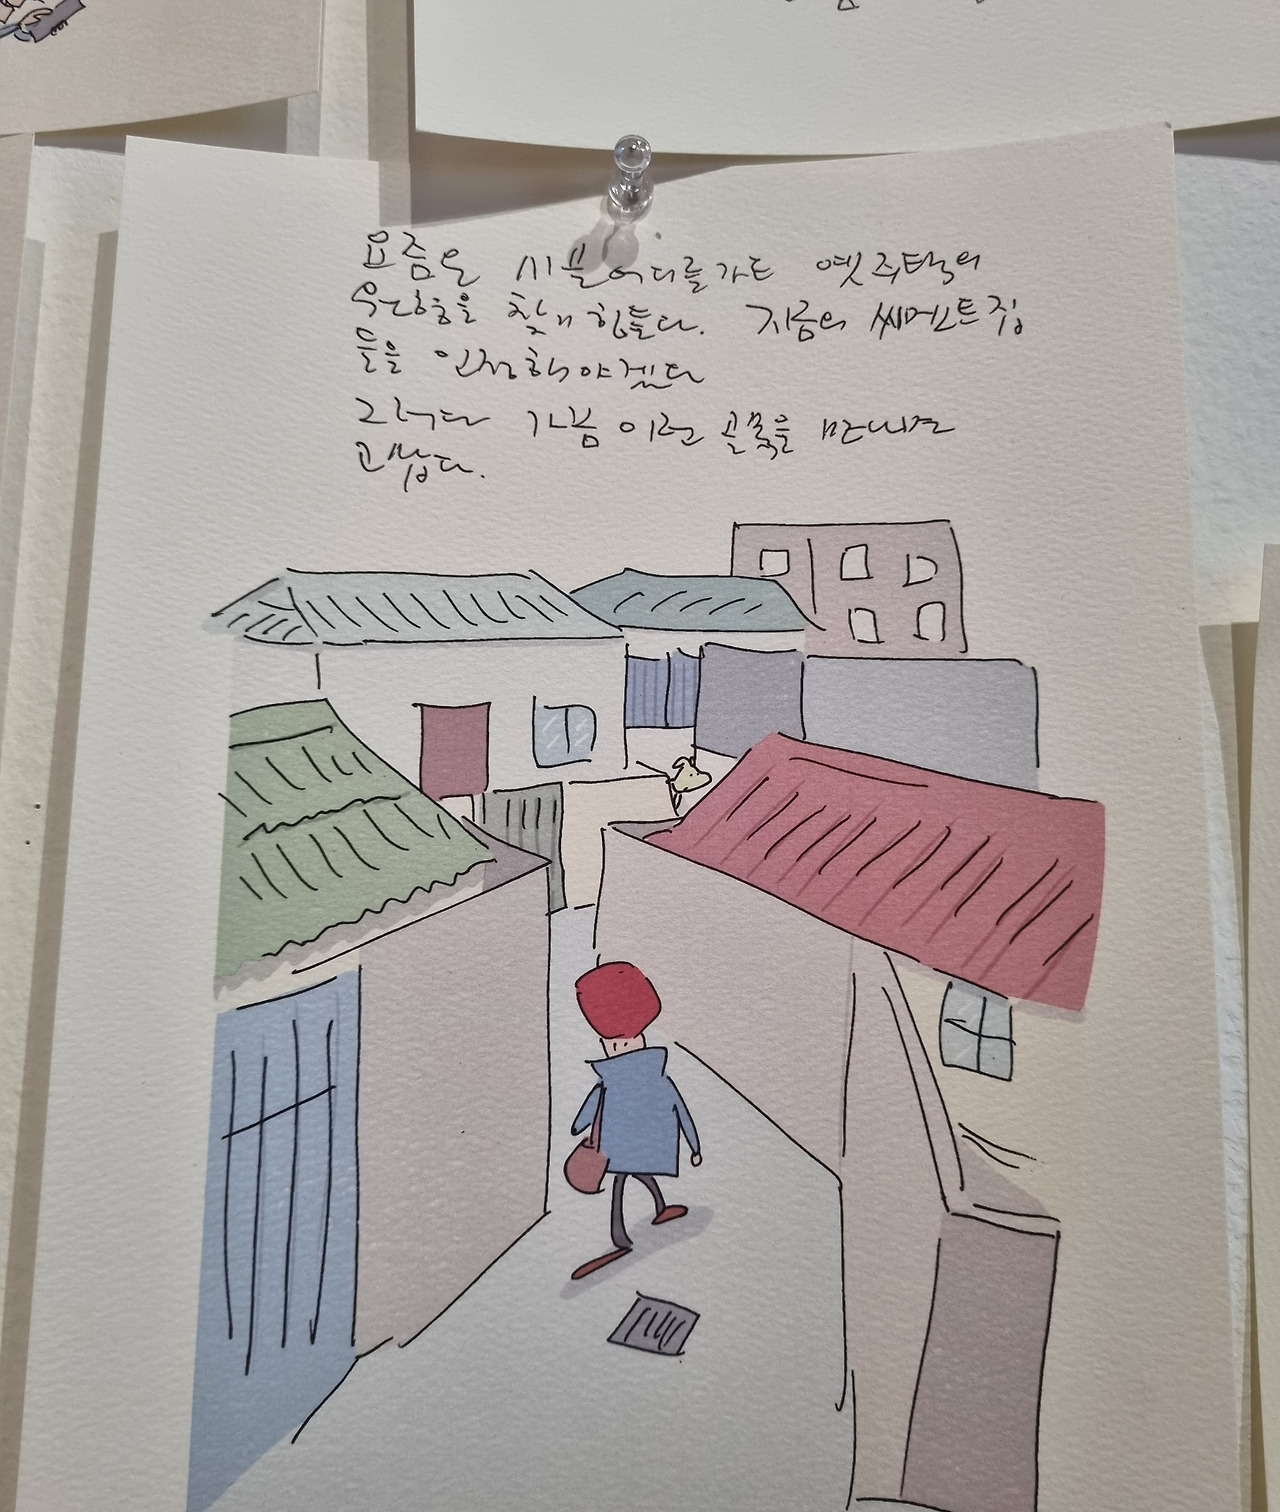 요즘은 시골 어디를 가도 옛 주택의
원형을 찾기 힘들다. 지금의 씨멘트 집
들을 인정해야겠다
그러다 가끔 이런 골목을 만나면
고맙다.